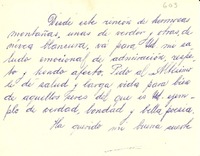 609
Desde este rincón de hermosas
montañas, unas de verdor y otras de
nivea blancura, va para Ud. mi sa-
ludo emocional de admiración, respe-
to y hondo afecto. Pido al Altísimo
de salud y larga vida para bien
de aquellos seres del que es Ud. ejem-
plo de verdad, bondad y bella poesía.
Ha querido mi buena suerte